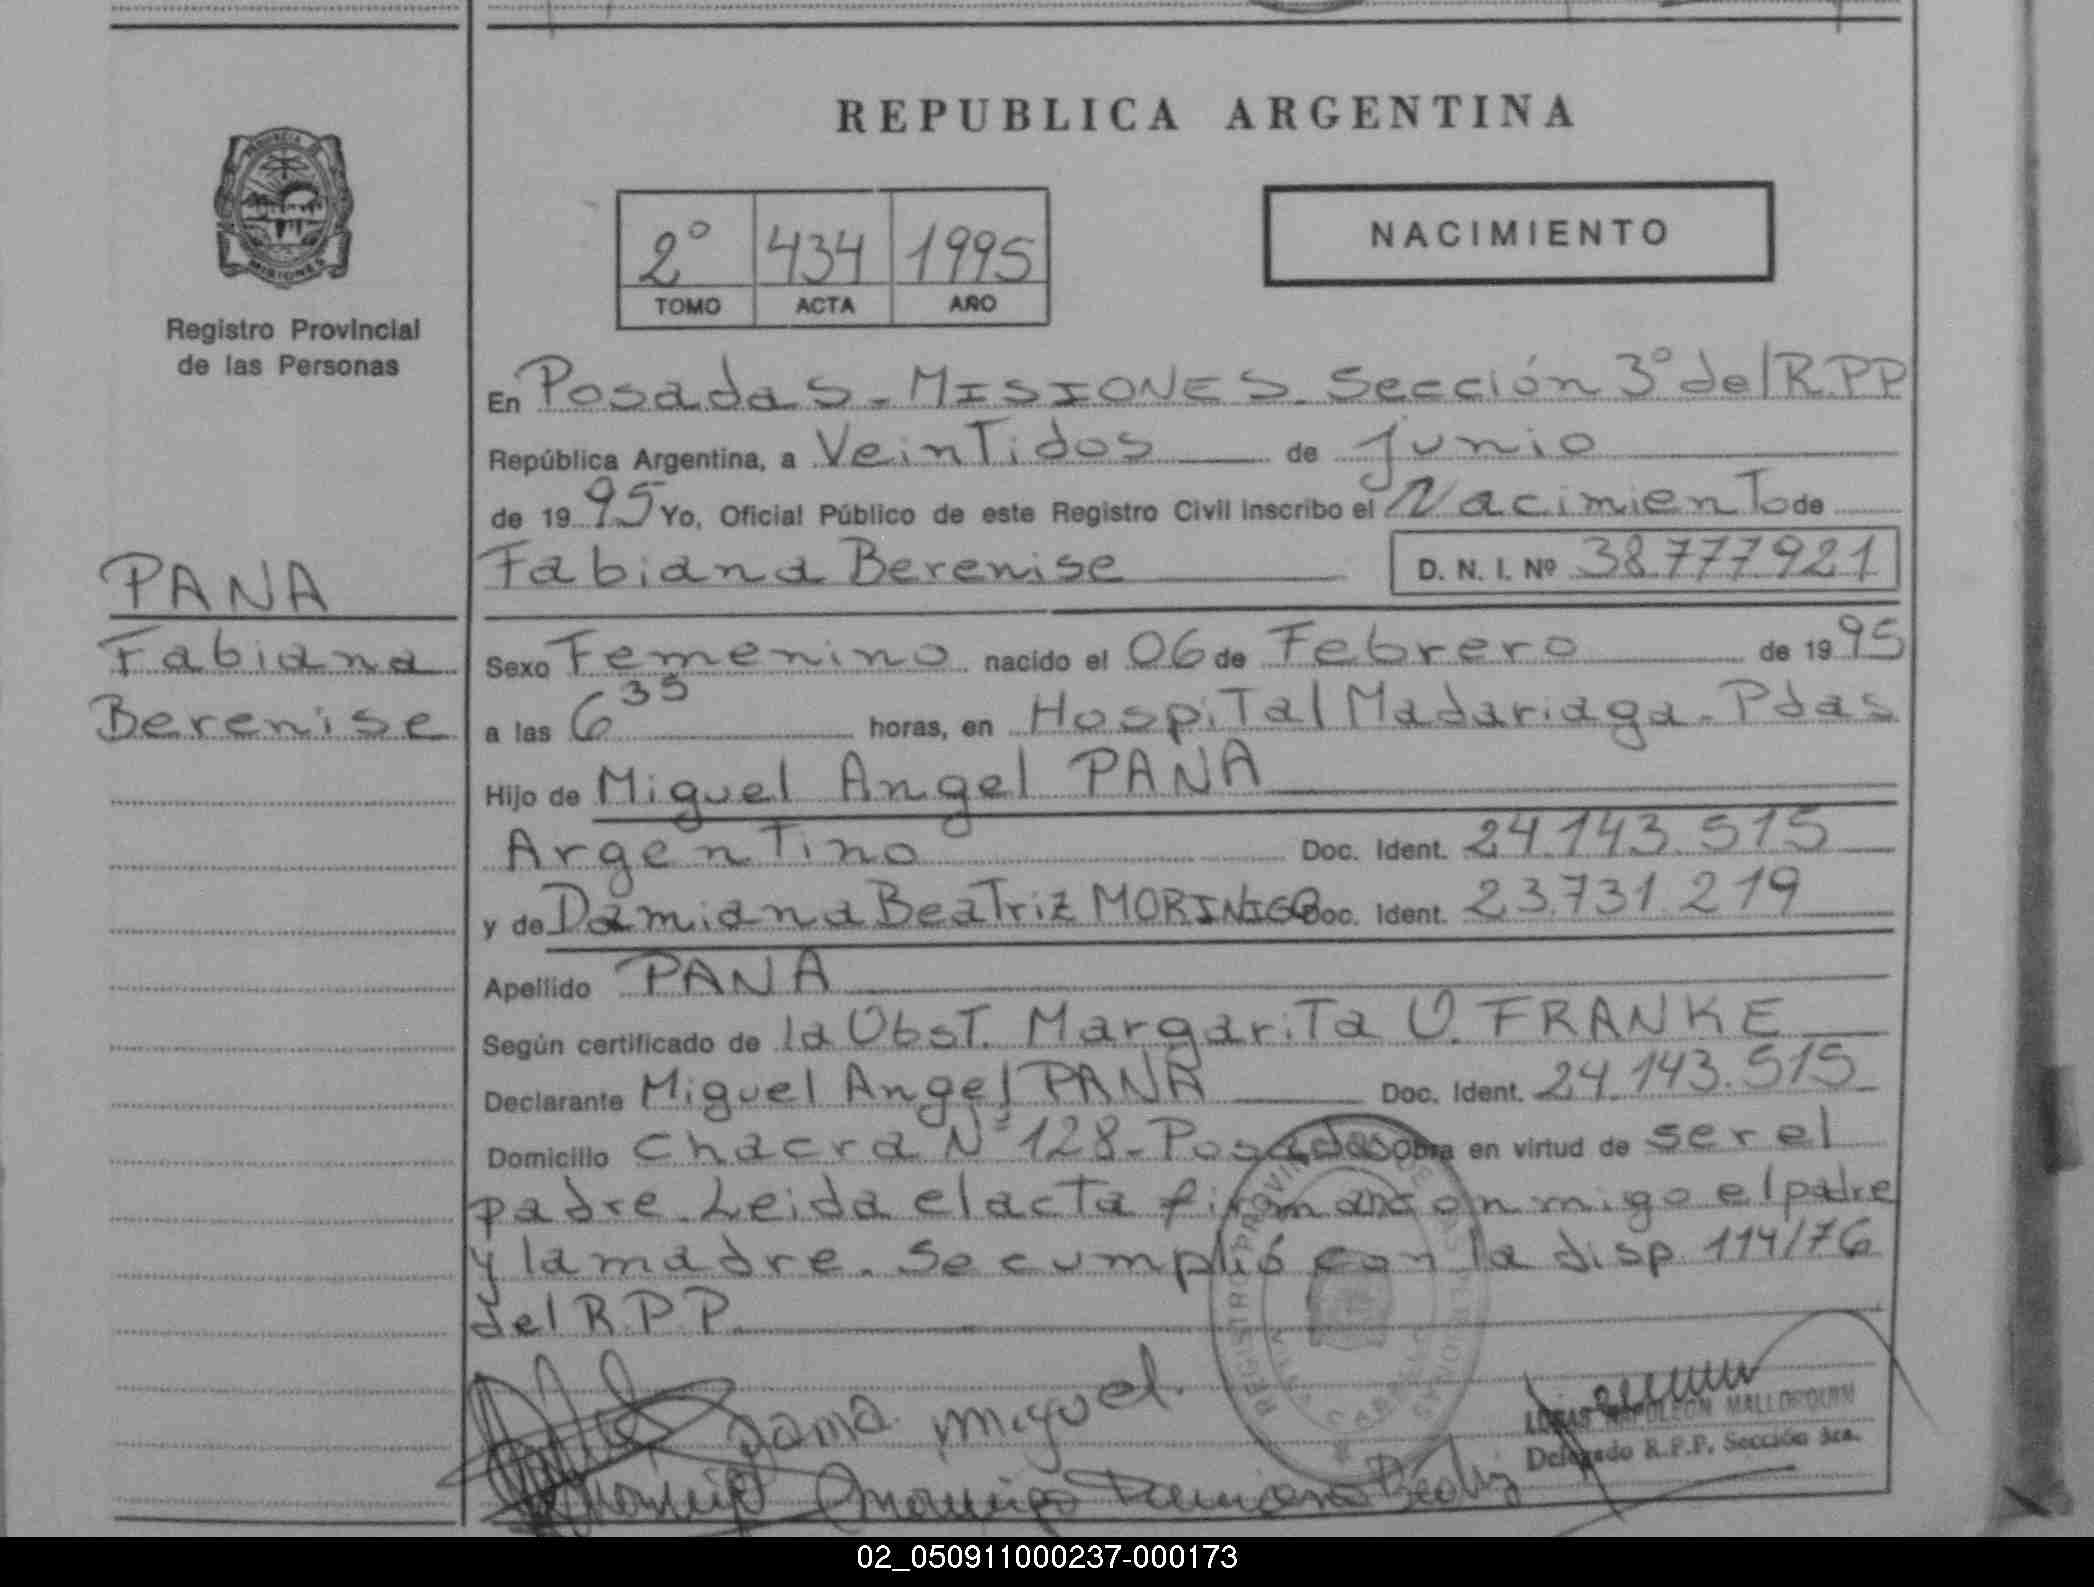 REPUBLICA ARGENTINA
PROVINCIA DE
MISIONES
Registro Provincial
de las Personas
2° 434 1995
TOMO ACTA AÑO
NACIMIENTO
En Posadas - MISIONES. Sección 3° del R.P.P
República Argentina, a Veintidos de Junio
de 1995 Yo, Oficial Público de este Registro Civil inscribo el Nacimiento de
PANA
Fabiana Berenise D. N. I. Nº 38.777.921
Fabiana
Sexo Femenino nacido el 06 de Febrero de 1995
Berenise
a las 6 35 horas, en Hospital Madariaga - Pdas
Hijo de Miguel Angel PANA
Argentino Doc. Ident. 24.143.515
y de Damiana Beatriz MORINIGO Doc. Ident. 23.731.219
Apellido PANA
Según certificado de la Obst. Margarita U. FRANKE
Declarante Miguel Angel PANA Doc. Ident. 24.143.515
Domicilio Chacra N° 128 - Posadas Obra en virtud de ser el
padre. Leida el acta firman conmigo el padre
y la madre. Se cumplió con la disp. 114/76
del R.P.P.
REGISTRO PROVINCIAL DE LAS PERSONAS
Pana Miguel.
LUCAS NAPOLEON MALLORQUIN
Delegado R.P.P. Sección 3ra.
Morinigo Damiana Beatriz
02_050911000237-000173